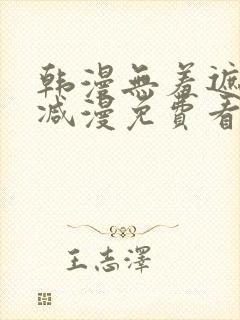 韩漫無羞遮
减漫免費看
王志澤